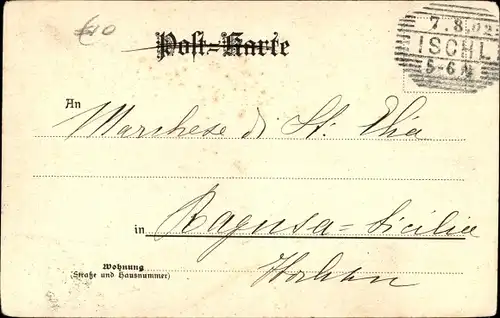 €20
Post-Karte
7.8.02
ISCHL
5-6 N
An
Marchese di St. Elia
in
Ragusa=Sicilia
Wohnung
(Straße und Hausnummer)
Italien